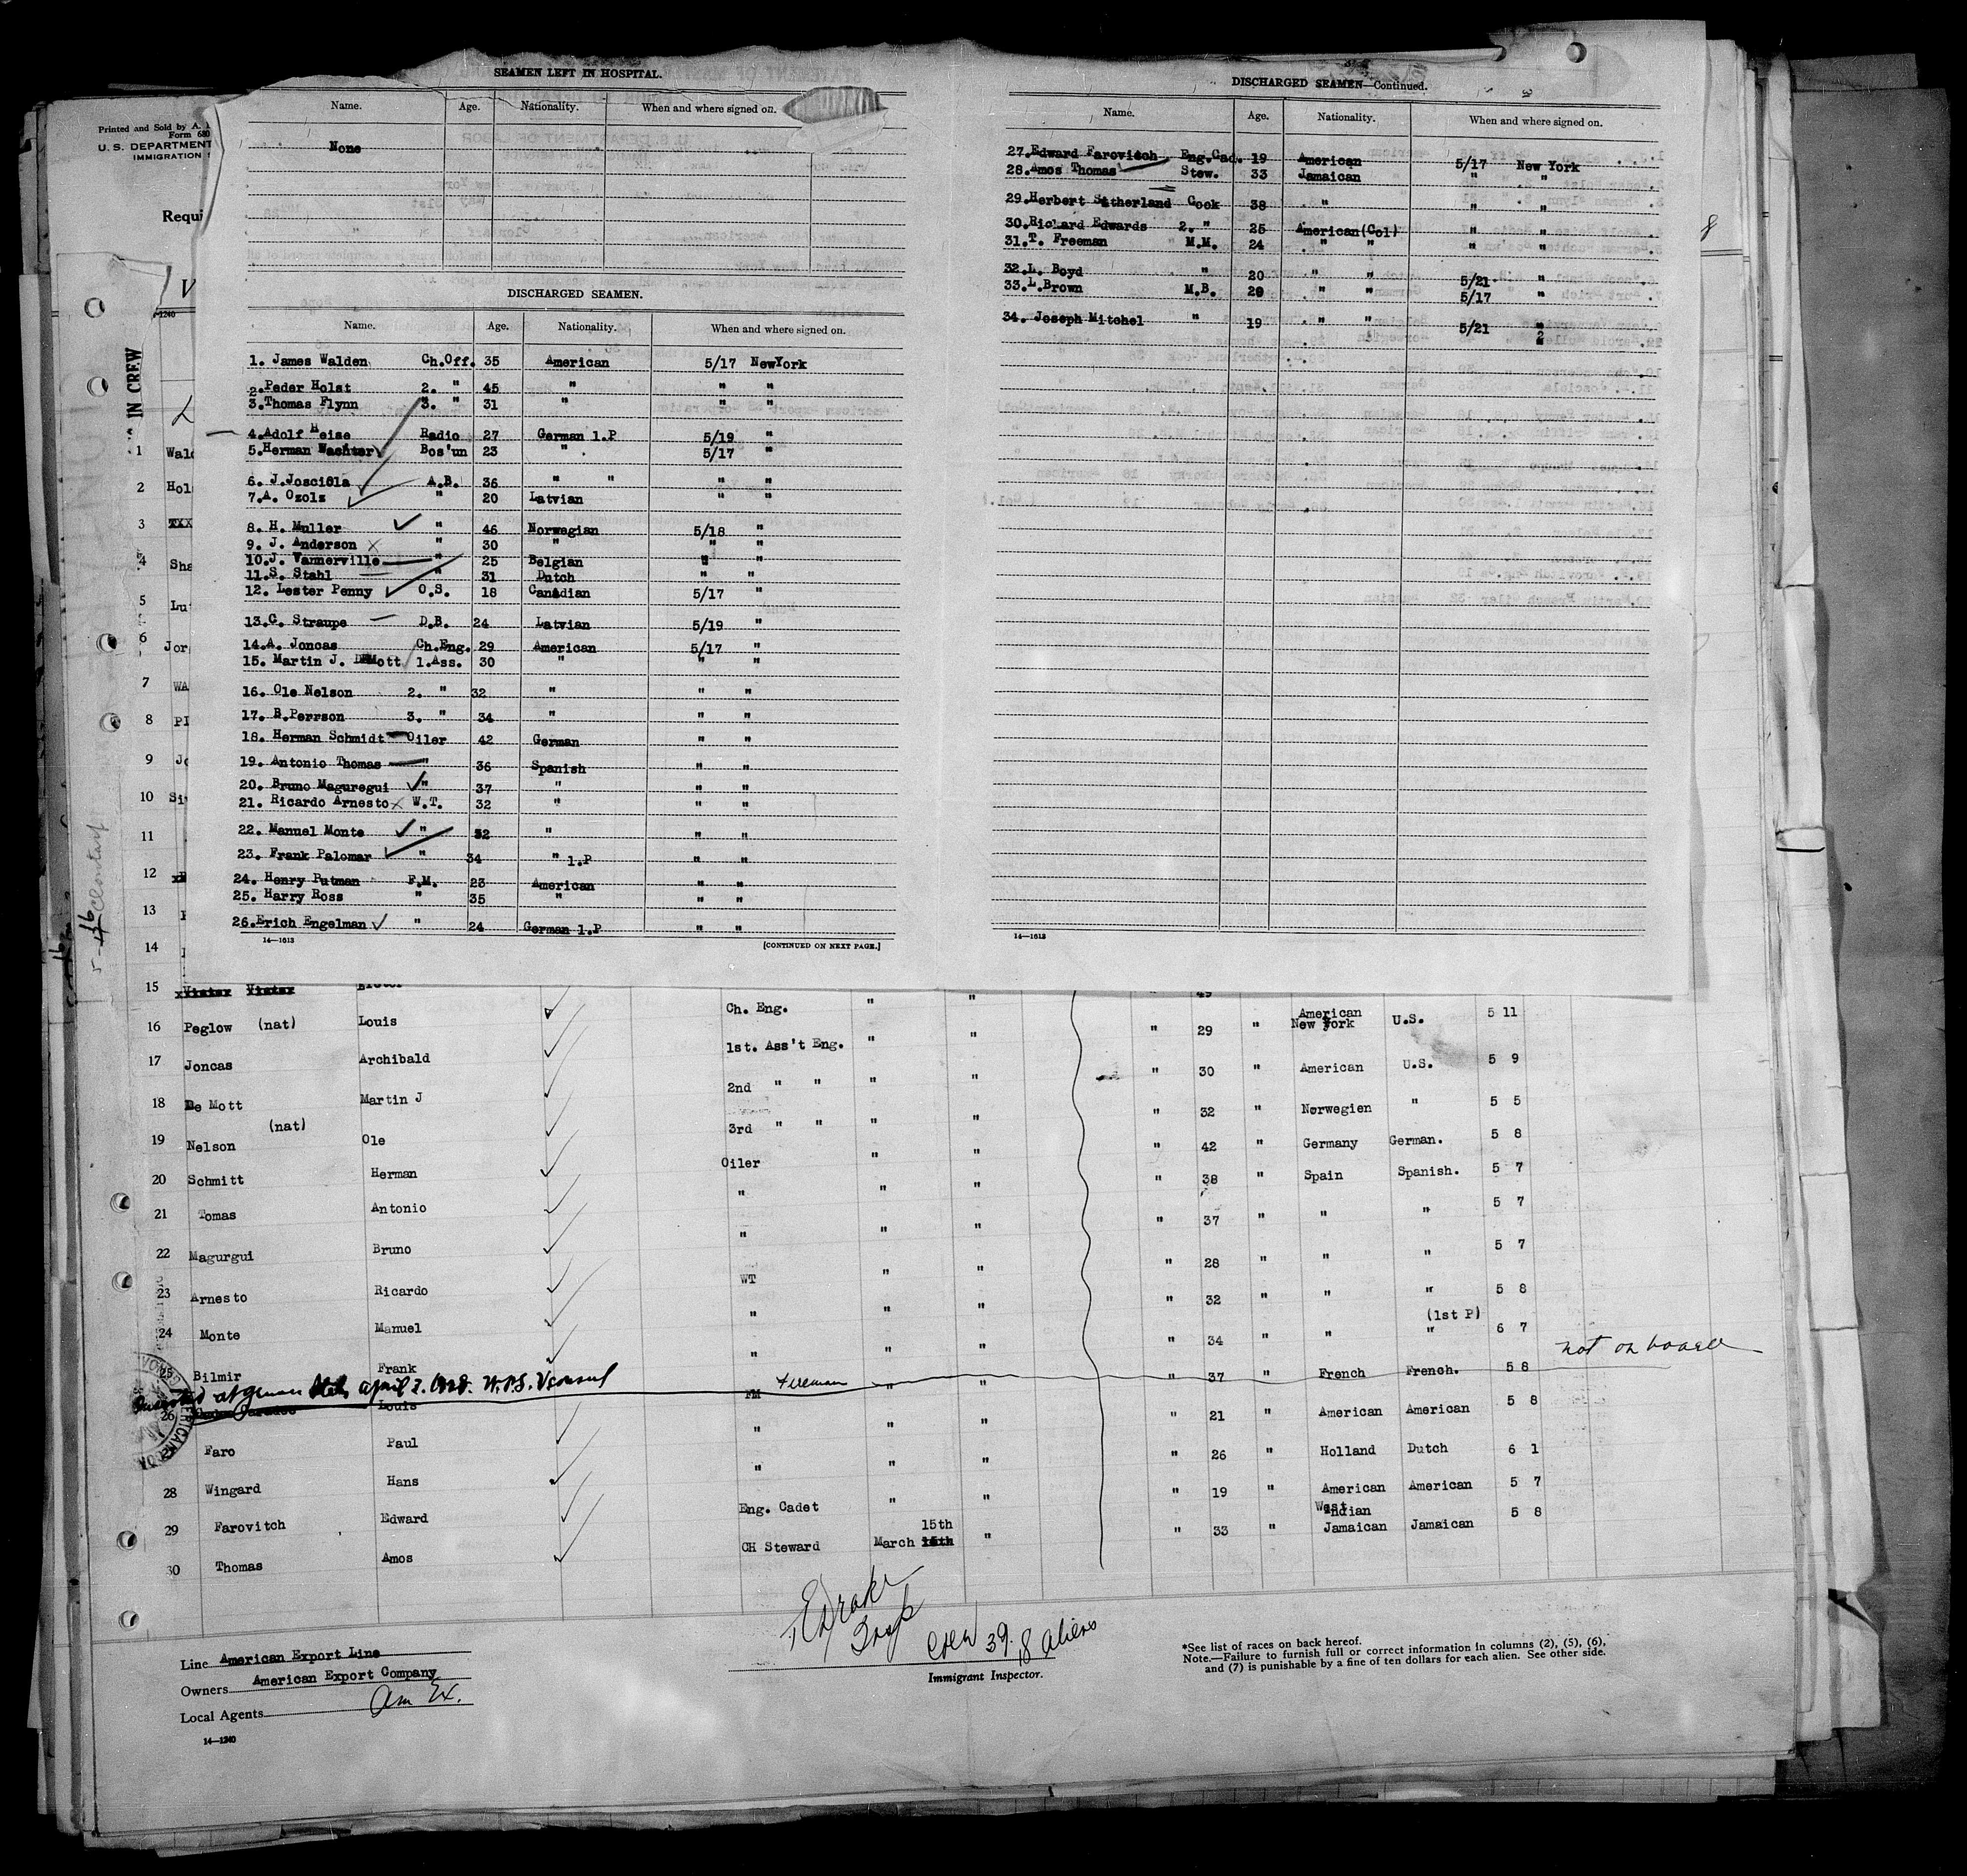 SEAMEN LEFT IN HOSPITAL.
Name. Age. Nationality. When and where signed on.
None
DISCHARGED SEAMEN.
Name. Age. Nationality. When and where signed on.
1. James Walden Ch.Off. 35 American 5/17 NewYork
2. Peder Holst 2. " 45 " " "
3. Thomas Flynn 3. " 31 " " "
4. Adolf Heise Radio 27 German 1.P 5/19 "
5. Herman Wachter Bos'un 23 " 5/17 "
6. J. Josciola A.B. 36 " " " "
7. A. Ozols " 20 Latvian " "
8. H. Muller " 46 Norwegian 5/18 "
9. J. Anderson " 30 " " "
10. J. Vannerville " 25 Belgian " "
11. S. Stahl " 31 Dutch " "
12. Lester Penny O.S. 18 Canadian 5/17 "
13. G. Straupe D.B. 24 Latvian 5/19 "
14. A. Joncas Ch.Eng. 29 American 5/17 "
15. Martin J. DeMott 1.Ass. 30 " " "
16. Ole Nelson 2. " 32 " " "
17. B. Perrson 3. " 34 " " "
18. Herman Schmidt Oiler 42 German " "
19. Antonio Thomas " 36 Spanish " "
20. Bruno Maguregui " 37 " " "
21. Ricardo Arnesto W.T. 32 " " "
22. Manuel Monte " 32 " " "
23. Frank Palomar " 34 " 1.P " "
24. Henry Putman F.M. 23 American " "
25. Harry Ross " 35 " " "
26. Erich Engelman " 24 German 1.P " "
14—1613 [CONTINUED ON NEXT PAGE.]
DISCHARGED SEAMEN—Continued.
Name. Age. Nationality. When and where signed on.
27. Edward Farovitch Eng.Cad. 19 American 5/17 New York
28. Amos Thomas Stew. 33 Jamaican " "
29. Herbert Sutherland Cook 38 " " "
30. Richard Edwards 2. " 25 American(Col) " "
31. T. Freeman M.M. 24 " " " "
32. L. Boyd " 20 " " 5/21 "
33. L. Brown M.B. 20 " " 5/17 "
34. Joseph Mitchel " 19 " " 5/21 "
14—1613
Printed and Sold by A.
Form 680
U. S. DEPARTMENT
IMMIGRATION
Requi
IN CREW
1 Wald
2 Hols
3
4 Sha
5 Lu
6 Jor
7 WA
8 PI
9 Jo
10 Si
11
12
13
14
15 49
16 Peglow (nat) Louis Ch. Eng. " " " 29 " American New York U.S. 5 11
17 Joncas Archibald 1st. Ass't Eng. " " " 30 " American U.S. 5 9
18 De Mott Martin J 2nd " " " " " 32 " Norwegien " 5 5
19 Nelson (nat) Ole 3rd " " " " " 42 " Germany German. 5 8
20 Schmitt Herman Oiler " " " 38 " Spain Spanish. 5 7
21 Tomas Antonio " " " " 37 " " " 5 7
22 Magurgui Bruno " " " " 28 " " " 5 7
23 Arnesto Ricardo WT " " " 32 " " " 5 8
24 Monte Manuel " " " " 34 " " (1st P) " 6 7
25 Bilmir Frank " " " " 37 " French French. 5 8 not on board
26 Louis FM Fireman " " " 21 " American American 5 8
Faro Paul " " " " 26 " Holland Dutch 6 1
28 Wingard Hans " " " " 19 " American American 5 7
29 Farovitch Edward Eng. Cadet " " " 33 " West Indian Jamaican Jamaican 5 8
30 Thomas Amos CH Steward March 15th "
Line American Export Line
Owners American Export Company
Local Agents Am Ex.
14—1240
Crew 39. 18 aliens
Immigrant Inspector.
*See list of races on back hereof.
Note.—Failure to furnish full or correct information in columns (2), (5), (6),
and (7) is punishable by a fine of ten dollars for each alien. See other side.